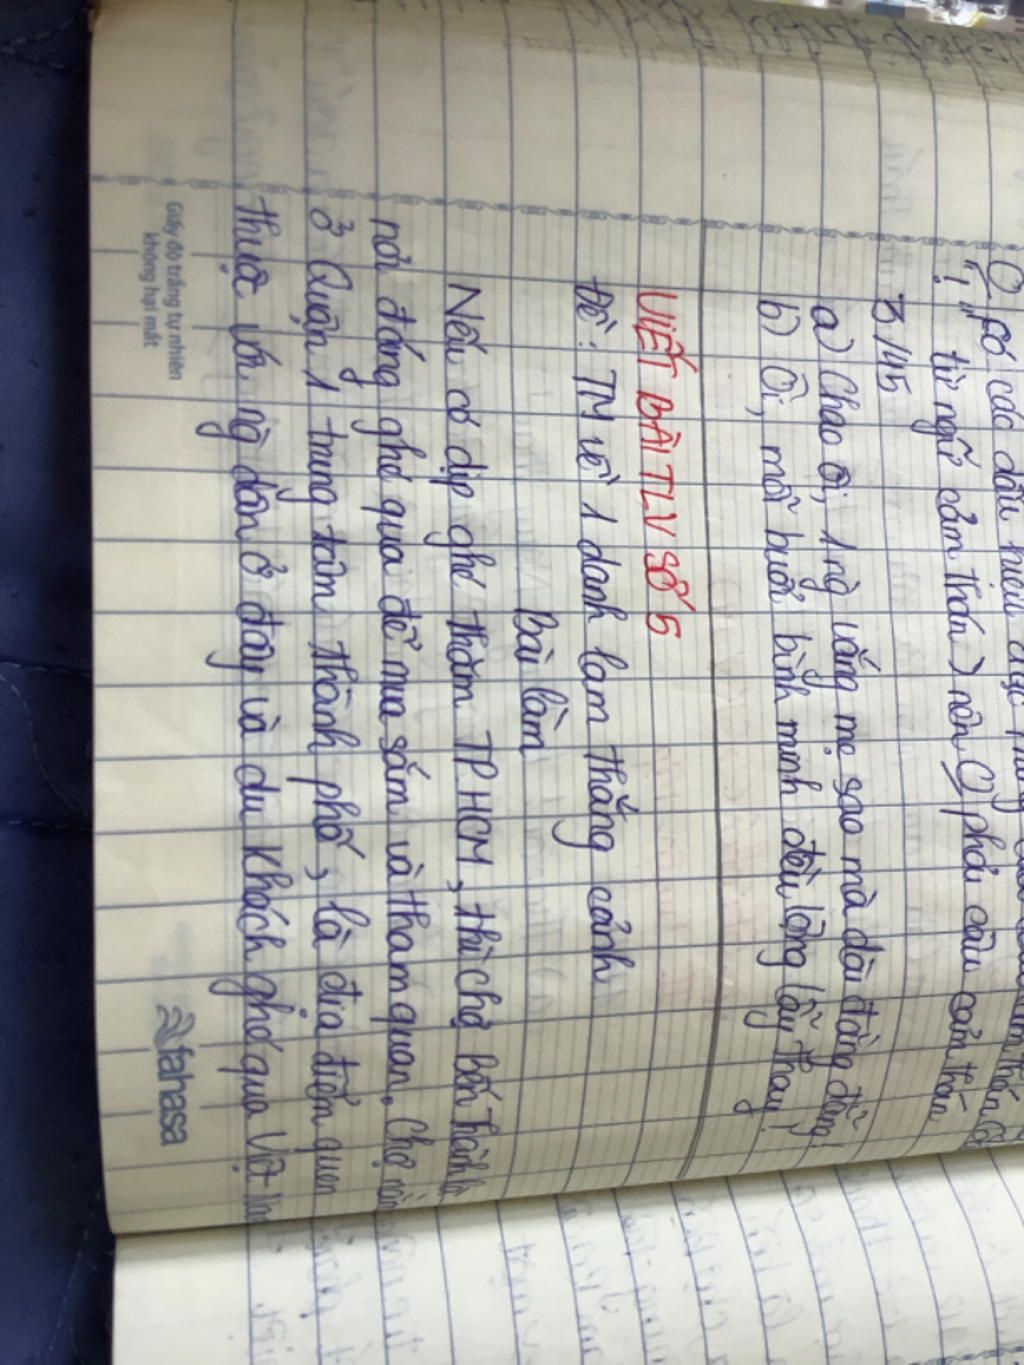 có các dấu hiệu
từ ngữ cảm thán) nên phải câu cảm thán
3/45
a) Chao ôi, 1 ng vắng mẹ sao mà dài đằng đẵng!
b) Ôi, mỗi buổi bình minh đều lộng lẫy thay!
VIẾT BÀI TLV SỐ 5
Đề: TM về 1 danh lam thắng cảnh
Bài làm
Nếu có dịp ghé thăm TP.HCM, thì chợ Bến Thành là
nơi đáng ghé qua để mua sắm và tham quan. Chợ nằm
ở Quận 1 trung tâm thành phố, là địa điểm quen
thuộc với ng dân ở đây và du khách ghé qua Việt Nam
Giấy độ trắng tự nhiên
không hại mắt
fahasa